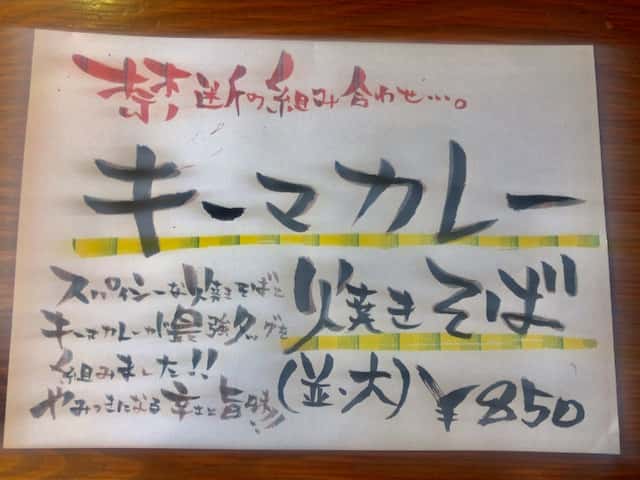 禁断の組み合わせ…。
キーマカレー
焼きそば
スパイシーな焼きそばと
キーマカレーが最強タッグを
組みました!!
やみつきになる辛さと旨味!!
(並・大)
¥850